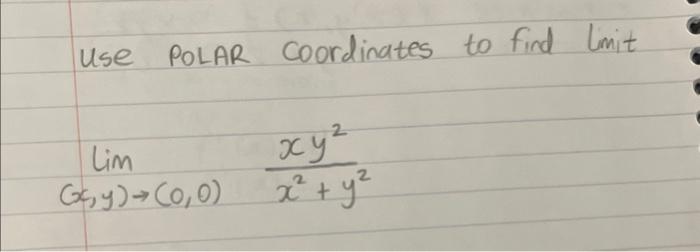 Use POLAR Coordinates to find limit
lim (x,y)→(0,0) xy² / x² + y²